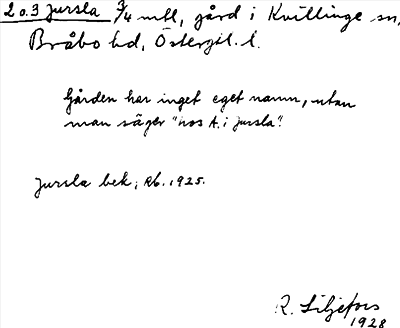 2 o. 3 Jursla 3/4 mtl, gård i Kvillinge sn,
Bråbo hd, Östergtl. l.
Gården har inget eget namn, utan
man säger "hos A. i Jursla".
Jursla bek; Rb. 1925.
R. Liljefors
1928